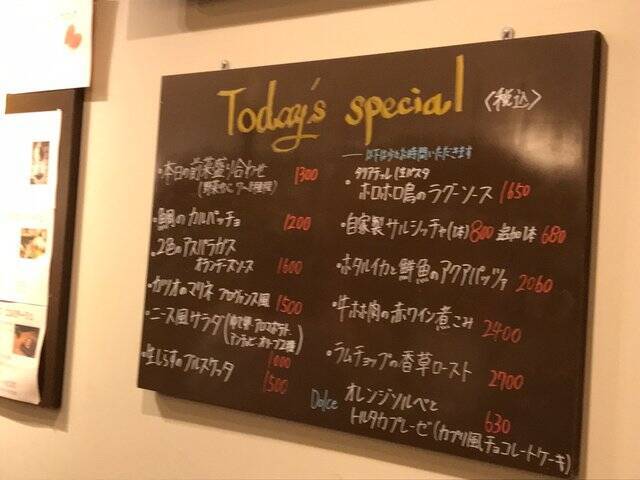 Today's special 〈税込〉
・本日の前菜盛り合わせ 1300
・鯛のカルパッチョ 1200
・2色のアスパラガス
オランデーズソース 1600
・カツオのマリネ プロヴァンス風 1500
・ニース風サラダ
1000
・生しらすのブルスケッタ 1500
以下は少々お時間いただきます
タリアテッレ(生パスタ
・ホロホロ鳥のラグーソース 1650
・自家製サルシッチャ(1本) 800 追加1本 680
・ホタルイカと鮮魚のアクアパッツァ 2060
・牛ホホ肉の赤ワイン煮こみ 2400
・ラムチョップの香草ロースト 2700
Dolce オレンジソルベと 630
トルタカプレーゼ(カプリ風チョコレートケーキ)